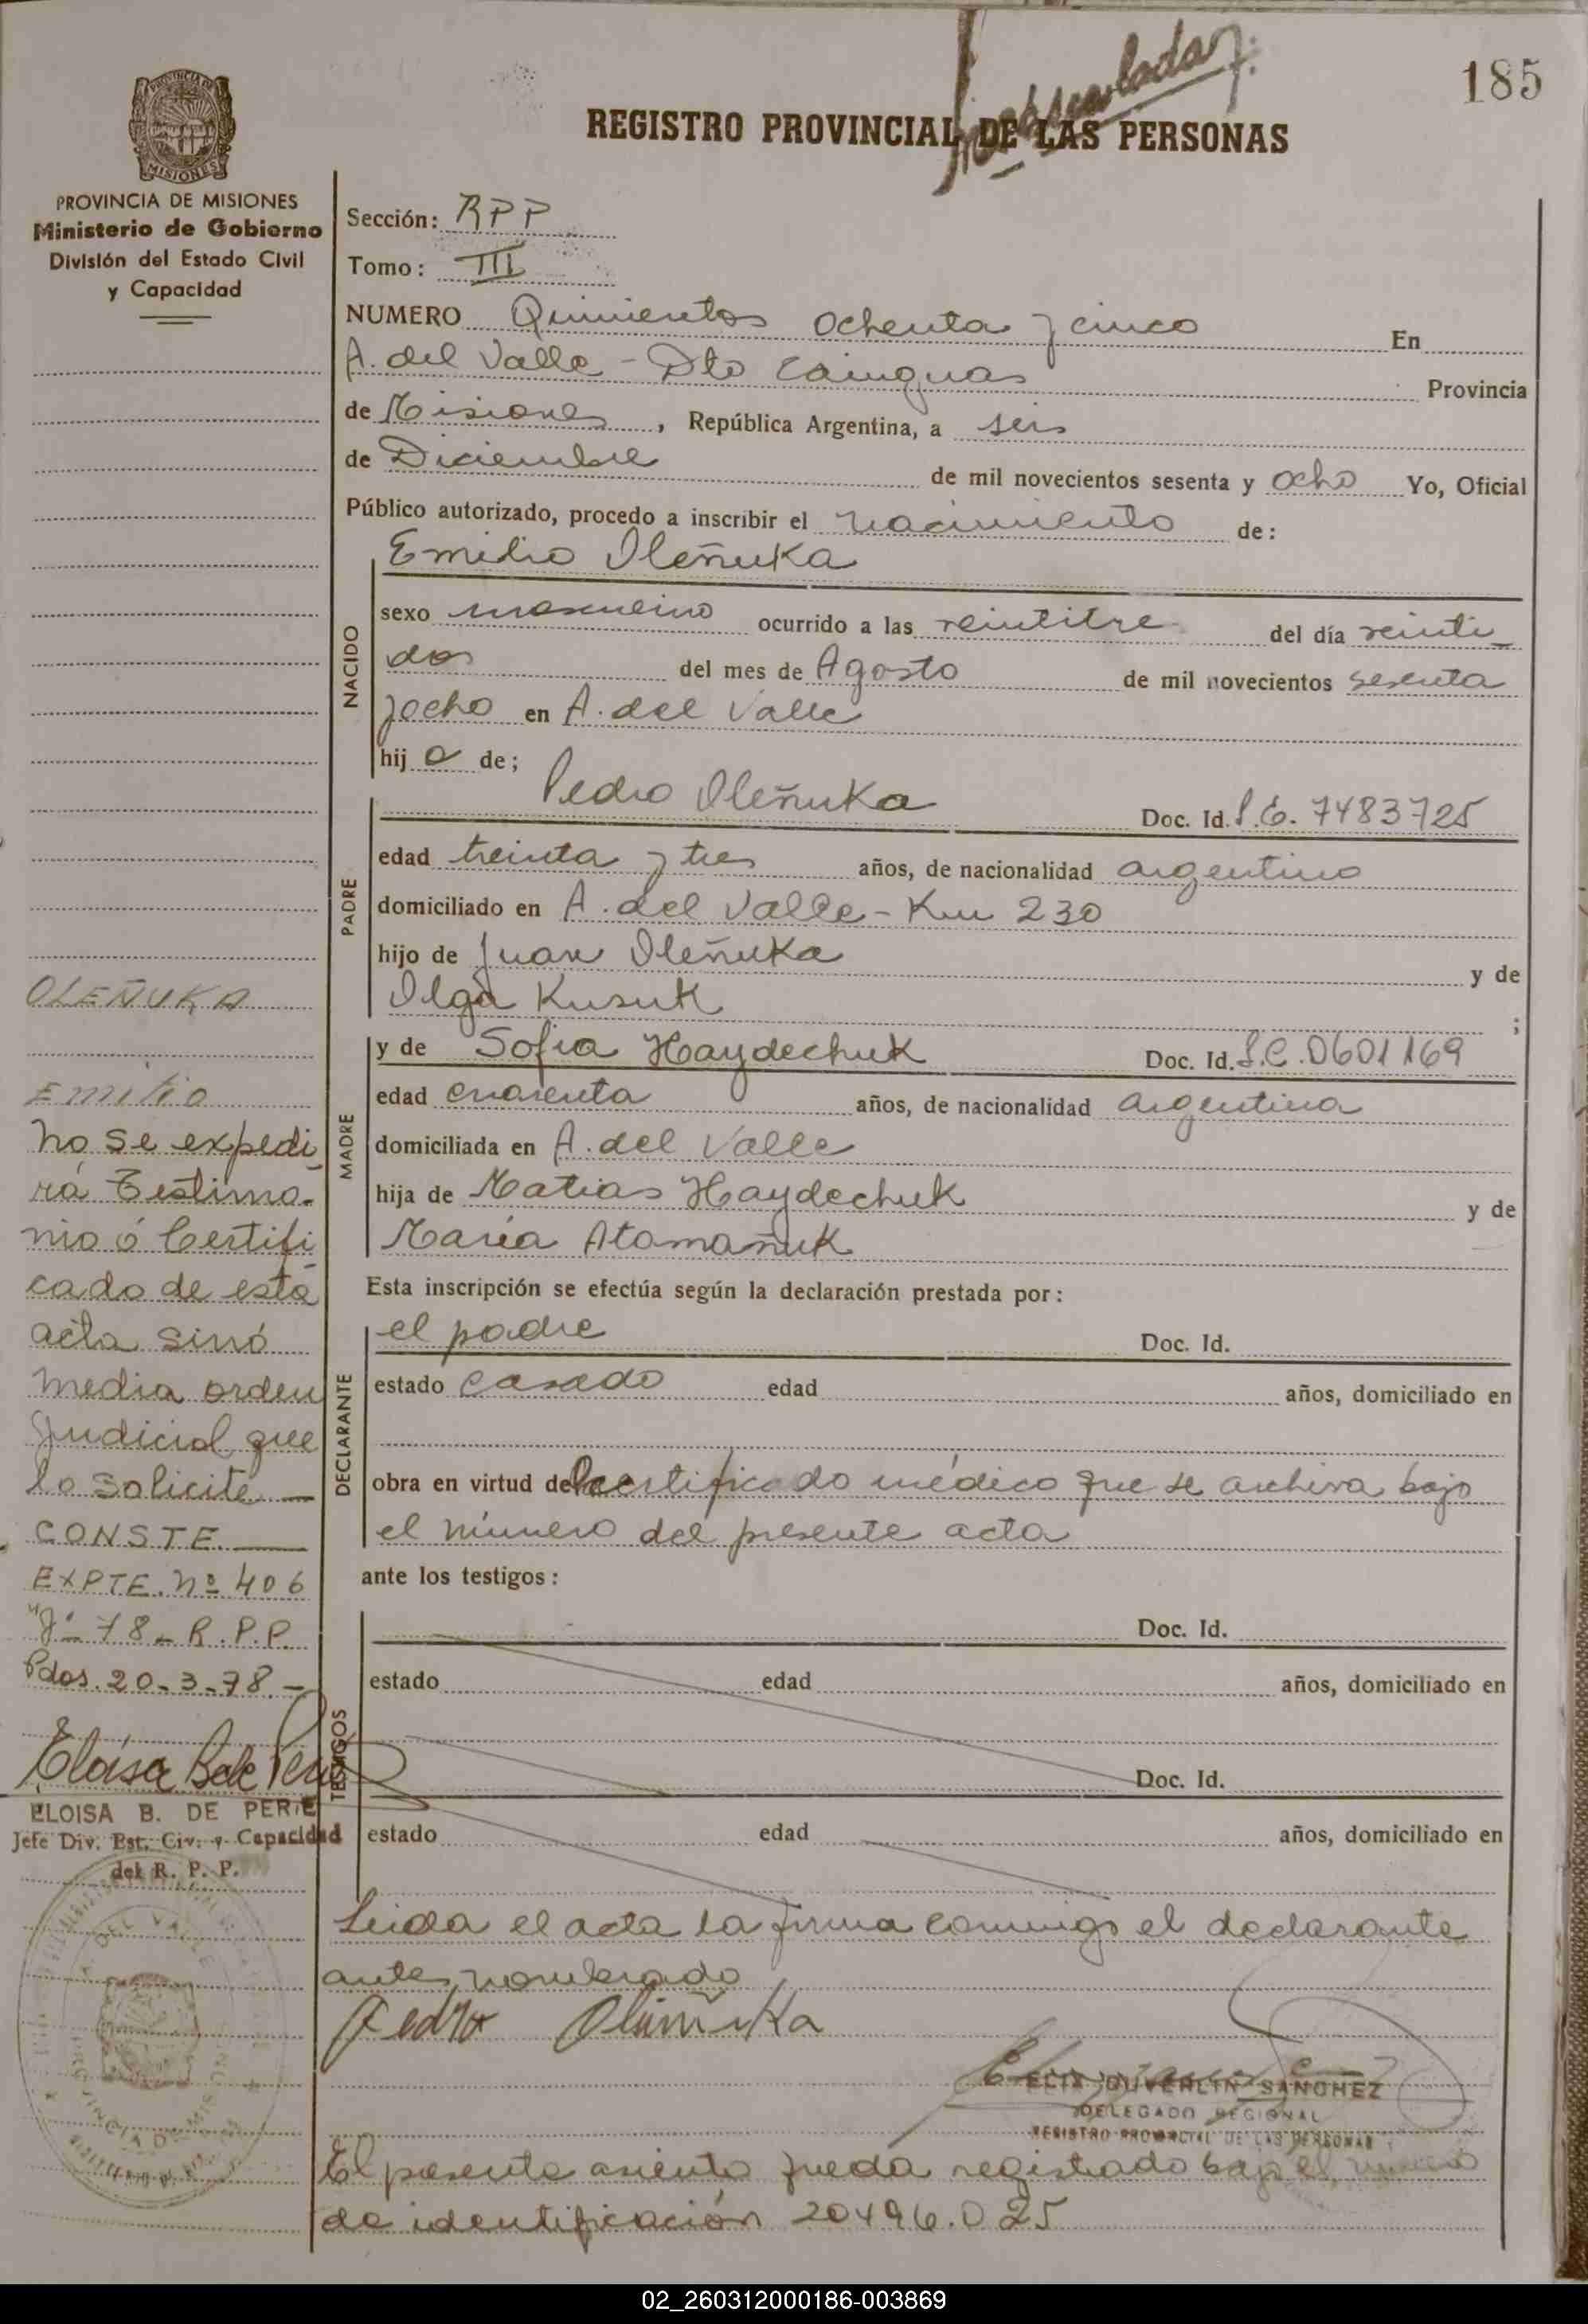 185
REGISTRO PROVINCIAL DE LAS PERSONAS
PROVINCIA DE MISIONES
Ministerio de Gobierno
División del Estado Civil
y Capacidad
Sección: RPP
Tomo: III
NUMERO Quinientos ochenta y cinco En
A. del Valle - Dto Cainguas Provincia
de Misiones, República Argentina, a seis
de Diciembre de mil novecientos sesenta y ocho Yo, Oficial
Público autorizado, procedo a inscribir el nacimiento de:
NACIDO
Emilio Oleñuka
sexo masculino ocurrido a las veintitre del día veinti-
dos del mes de Agosto de mil novecientos sesenta
y ocho en A. del Valle
hij o de;
PADRE
Pedro Oleñuka Doc. Id. L.E. 7483725
edad treinta y tres años, de nacionalidad argentino
domiciliado en A. del Valle - Km 230
hijo de Juan Oleñuka y de
Olga Kusuk ;
MADRE
y de Sofia Haydechuk Doc. Id. L.C. 0601169
edad cuarenta años, de nacionalidad argentina
domiciliada en A. del Valle
hija de Matias Haydechuk y de
María Atamañuk
Esta inscripción se efectúa según la declaración prestada por:
DECLARANTE
el padre Doc. Id.
estado casado edad años, domiciliado en
obra en virtud del certificado médico que se archiva bajo
el número del presente acta
ante los testigos:
TESTIGOS
Doc. Id.
estado edad años, domiciliado en
Doc. Id.
estado edad años, domiciliado en
Leida el acta la firma conmigo el declarante
antes nombrado
Pedro Oleñuka
SANCHEZ
DELEGADO REGIONAL
REGISTRO PROVINCIAL DE LAS PERSONAS
El presente asiento queda registrado bajo el numero
de identificación 20496.025
OLEÑUKA
Emilio
no se expedi-
rá Testimo-
nio ó Certifi-
cado de esta
acta sinó
media orden
Judicial que
lo solicite —
CONSTE. —
EXPTE. Nº 406
78 - R.P.P.
Pdos. 20-3-78 -
Eloisa B de Perié
ELOISA B. DE PERIE
Jefe Div. Est. Civ. y Capacidad
del R. P. P.
DEL VALLE
PROVINCIA DE MISIONES
02_260312000186-003869